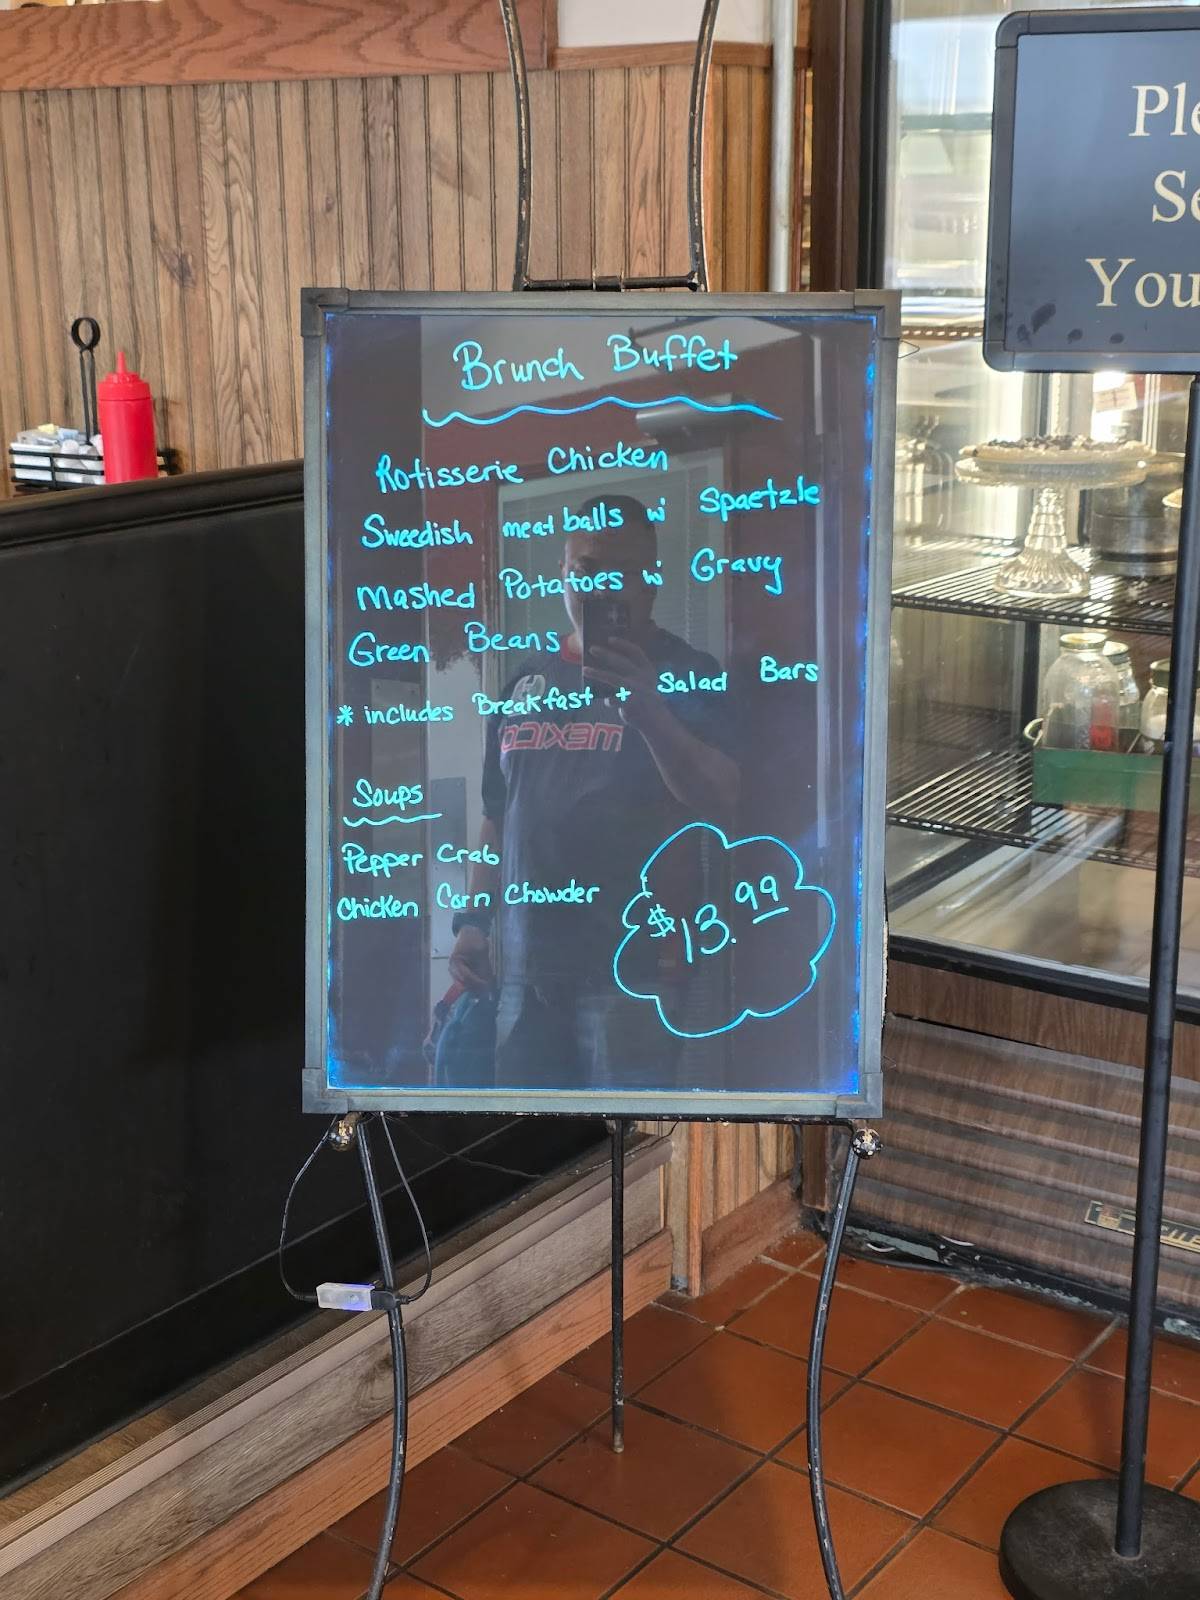 Brunch Buffet
Rotisserie Chicken
Sweedish meatballs w/ Spaetzle
Mashed Potatoes w/ Gravy
Green Beans
* includes Breakfast + Salad Bars
Soups
Pepper Crab
Chicken Corn Chowder
$13.99
MEXICO